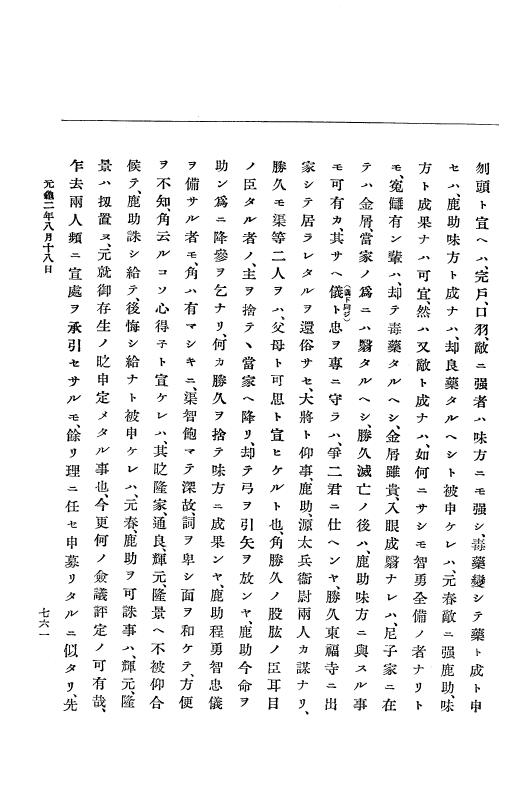 刎頭ト宣ヘハ、完戶、口羽、敵ニ强者ハ味方ニモ强シ、毒藥變シテ藥ト成ト申
セハ、鹿助味方ト成ナハ、却良藥タルヘシト被申ケレハ、元春敵ニ强鹿助、味
方ト成果ナハ可宜、然ハ又敵ト成ナハ、如何ニサシモ智勇全備ノ者ナリト
モ、寃讎有ン輩ハ、却テ毒藥タルヘシ、金屑雖貴、入眼成翳ナレハ、尼子家ニ在
テハ金屑、當家ノ爲ニハ翳タルヘシ、勝久滅亡ノ後ハ、鹿助味方ニ與スル事
モ可有カ、其サヘ儀(義ト同ジ)ト忠ヲ專ニ守ラハ、爭二君ニ仕ヘンヤ、勝久東福寺ニ出
家シテ居ラレタルヲ還俗サセ、大將ト仰事、鹿助、源太兵衞尉兩人カ謀ナリ、
勝久モ渠等二人ヲハ、父母ト可思ト宣ヒケルト也、角勝久ノ股肱ノ臣耳目
ノ臣タル者ノ、主ヲ捨テヽ當家ヘ降リ、却テ弓ヲ引矢ヲ放ンヤ、鹿助今命ヲ
助ン爲ニ降參ヲ乞ナリ、何カ勝久ヲ捨テ味方ニ成果ンヤ、鹿助程勇智忠儀
ヲ備サル者モ、角ハ有マシキニ、渠智飽マテ深故、詞ヲ卑シ面ヲ和ケテ、方便
ヲ不知角云ルコソ心得子ト宣ケレハ、其訖隆家、通良、輝元、隆景ヘ不被仰合
候テ、鹿助誅シ給テ、後悔シ給ナト被申ケレハ、元春、鹿助ヲ可誅事ハ、輝元、隆
景ハ扨置ヌ、元就御存生ノ訖申定メタル事也、今更何ノ僉議評定ノ可有哉、
乍去兩人頻ニ宣處ヲ承引セサルモ、餘リ理ニ任セ申募リタルニ似タリ、先
元龜二年八月十八日
七六一